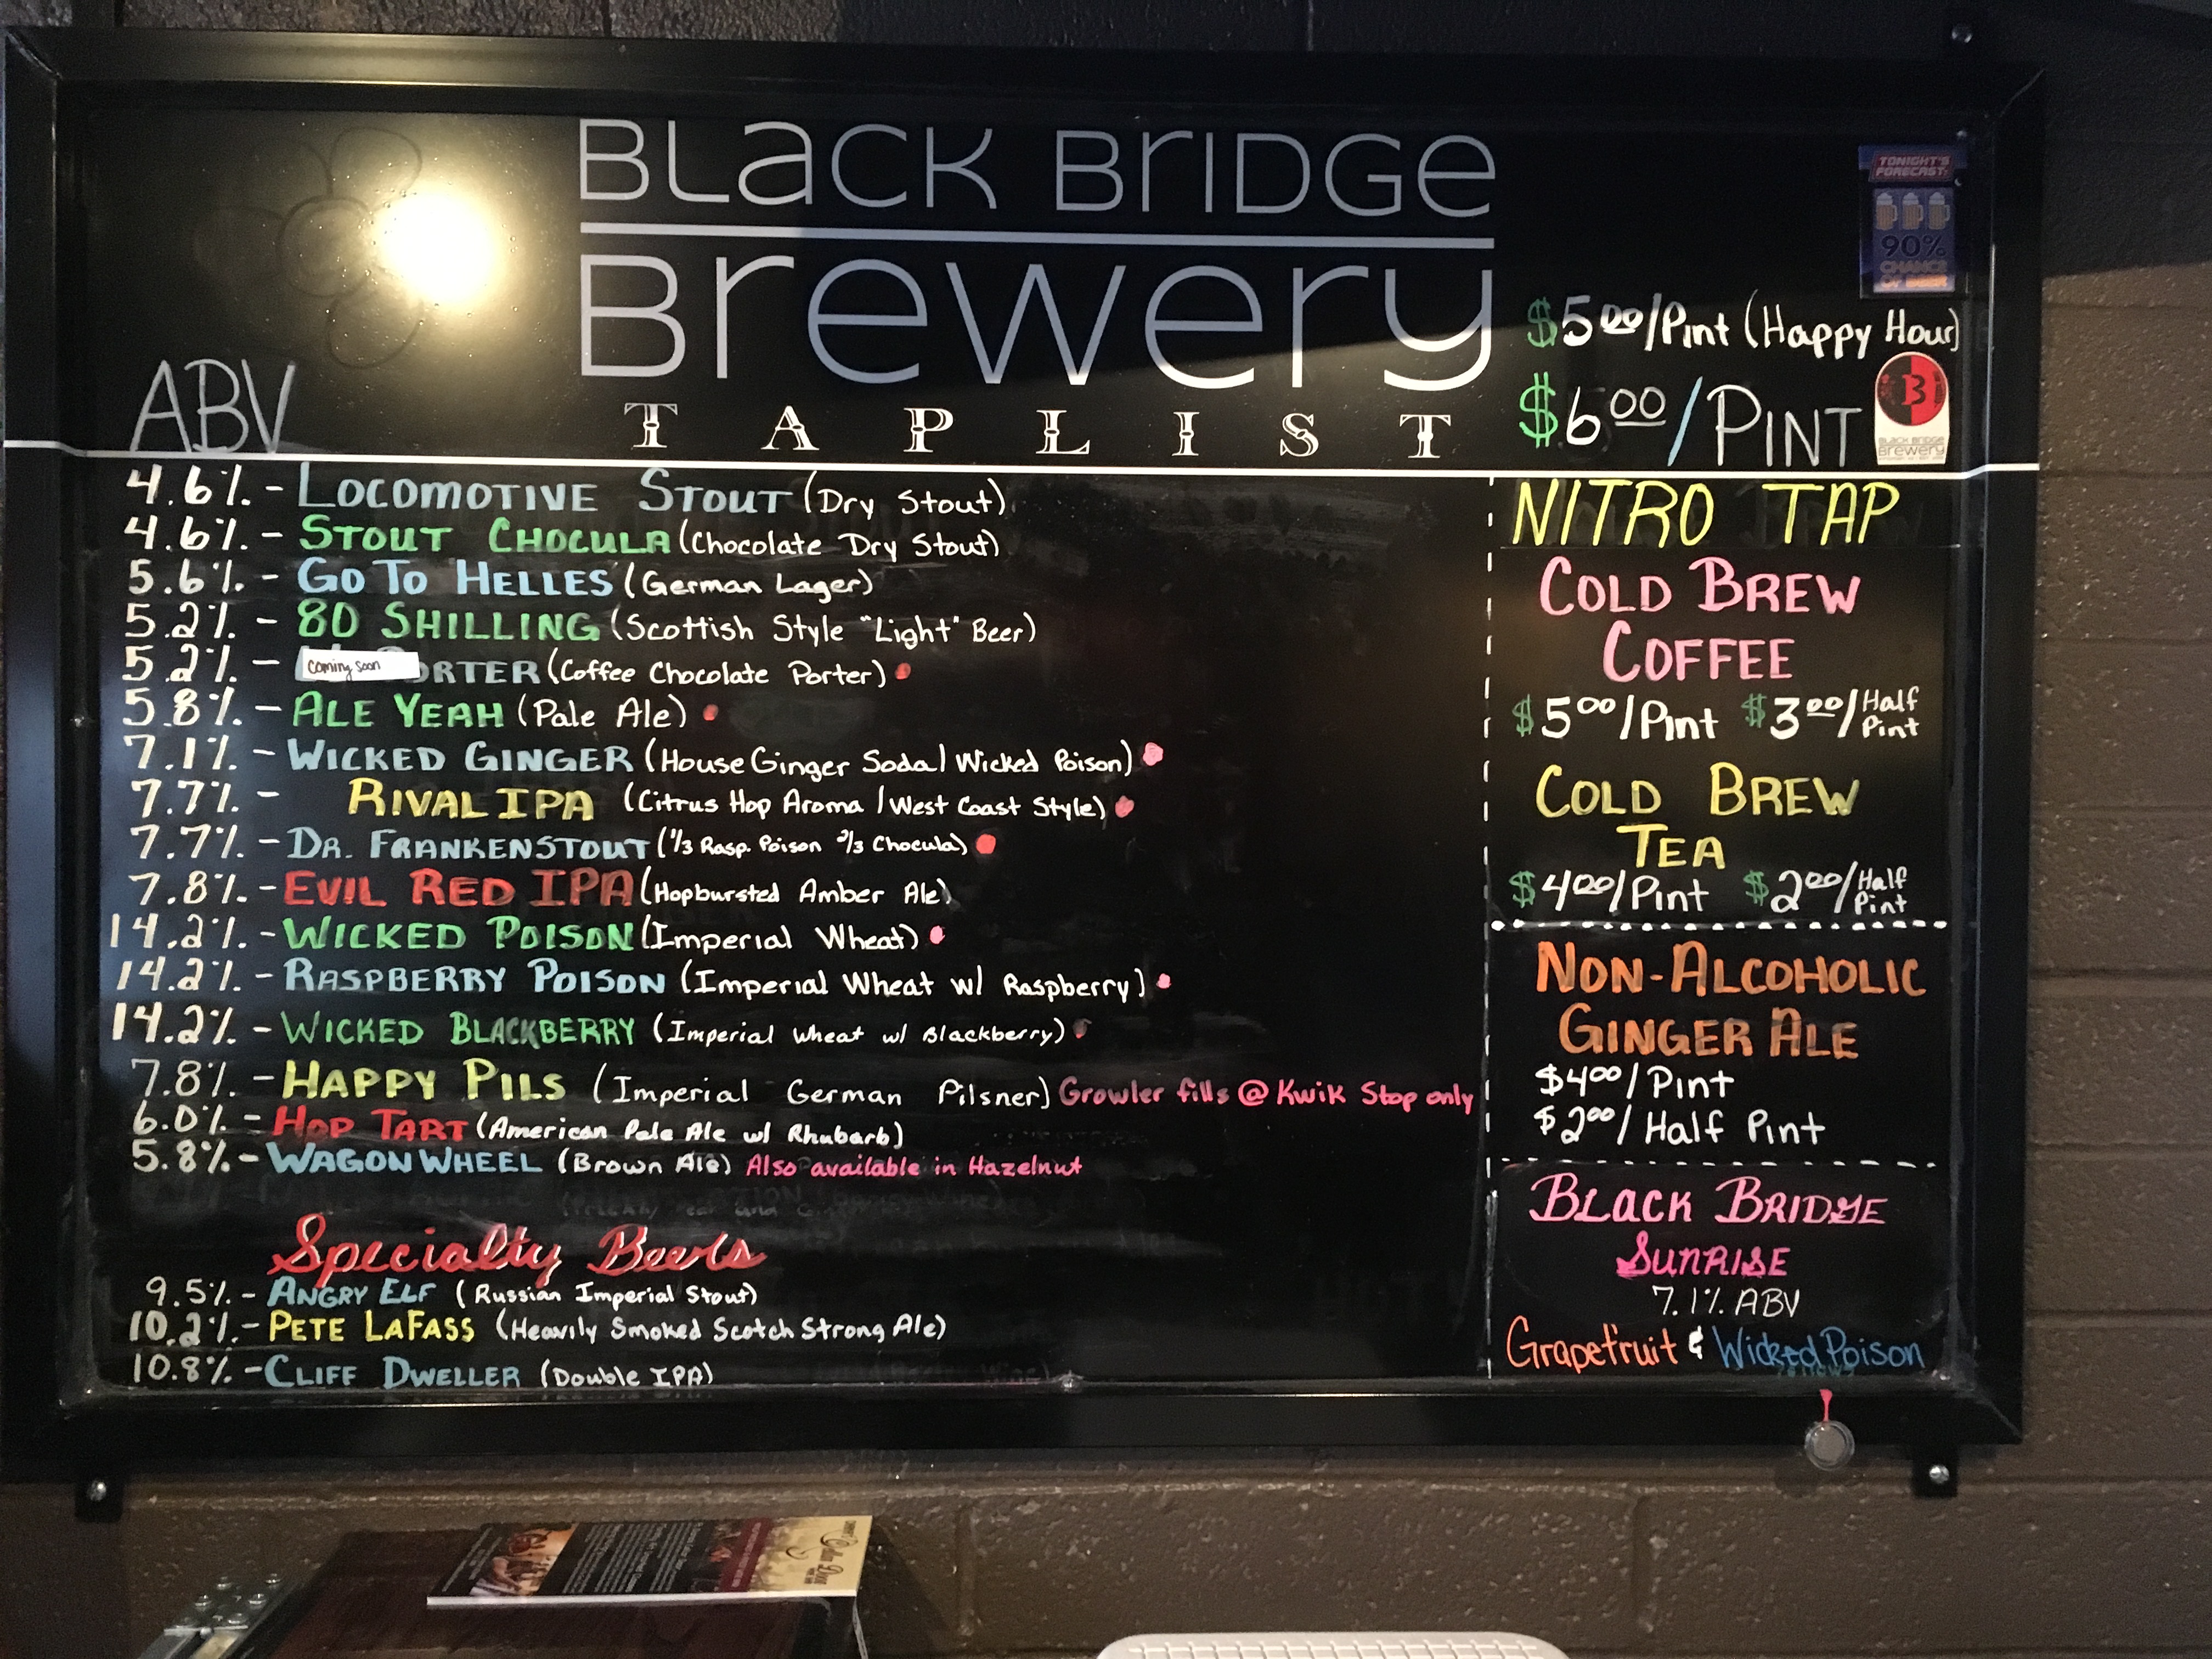 BLACK BRIDGE
Brewery
TAPLIST
TONIGHT'S
FORECAST:
90%
CHANCE
OF BEER
$5.00/Pint (Happy Hour)
$6.00/PINT
B
BLACK BRIDGE
Brewery
ABV
4.6% - LOCOMOTIVE STOUT (Dry Stout)
4.6% - STOUT CHOCULA (Chocolate Dry Stout)
5.6% - GO TO HELLES (German Lager)
5.2% - 80 SHILLING (Scottish Style "Light" Beer)
5.2% - coming soon PORTER (Coffee Chocolate Porter)
5.8% - ALE YEAH (Pale Ale)
7.1% - WICKED GINGER (House Ginger Soda/Wicked Poison)
7.7% - RIVAL IPA (Citrus Hop Aroma/West Coast Style)
7.7% - DR. FRANKENSTOUT (1/3 Rasp. Poison 2/3 Chocula)
7.8% - EVIL RED IPA (Hopbursted Amber Ale)
14.2% - WICKED POISON (Imperial Wheat)
14.2% - RASPBERRY POISON (Imperial Wheat w/ Raspberry)
14.2% - WICKED BLACKBERRY (Imperial Wheat w/ Blackberry)
7.8% - HAPPY PILS (Imperial German Pilsner) Growler fills @ Kwik Stop only
6.0% - HOP TART (American Pale Ale w/ Rhubarb)
5.8% - WAGON WHEEL (Brown Ale) Also available in Hazelnut
Specialty Beers
9.5% - ANGRY ELF (Russian Imperial Stout)
10.2% - PETE LAFASS (Heavily Smoked Scotch Strong Ale)
10.8% - CLIFF DWELLER (Double IPA)
NITRO TAP
COLD BREW
COFFEE
$5.00/Pint $3.00/Half Pint
COLD BREW
TEA
$4.00/Pint $2.00/Half Pint
NON-ALCOHOLIC
GINGER ALE
$4.00/Pint
$2.00/Half Pint
BLACK BRIDGE
SUNRISE
7.1% ABV
Grapefruit & Wicked Poison